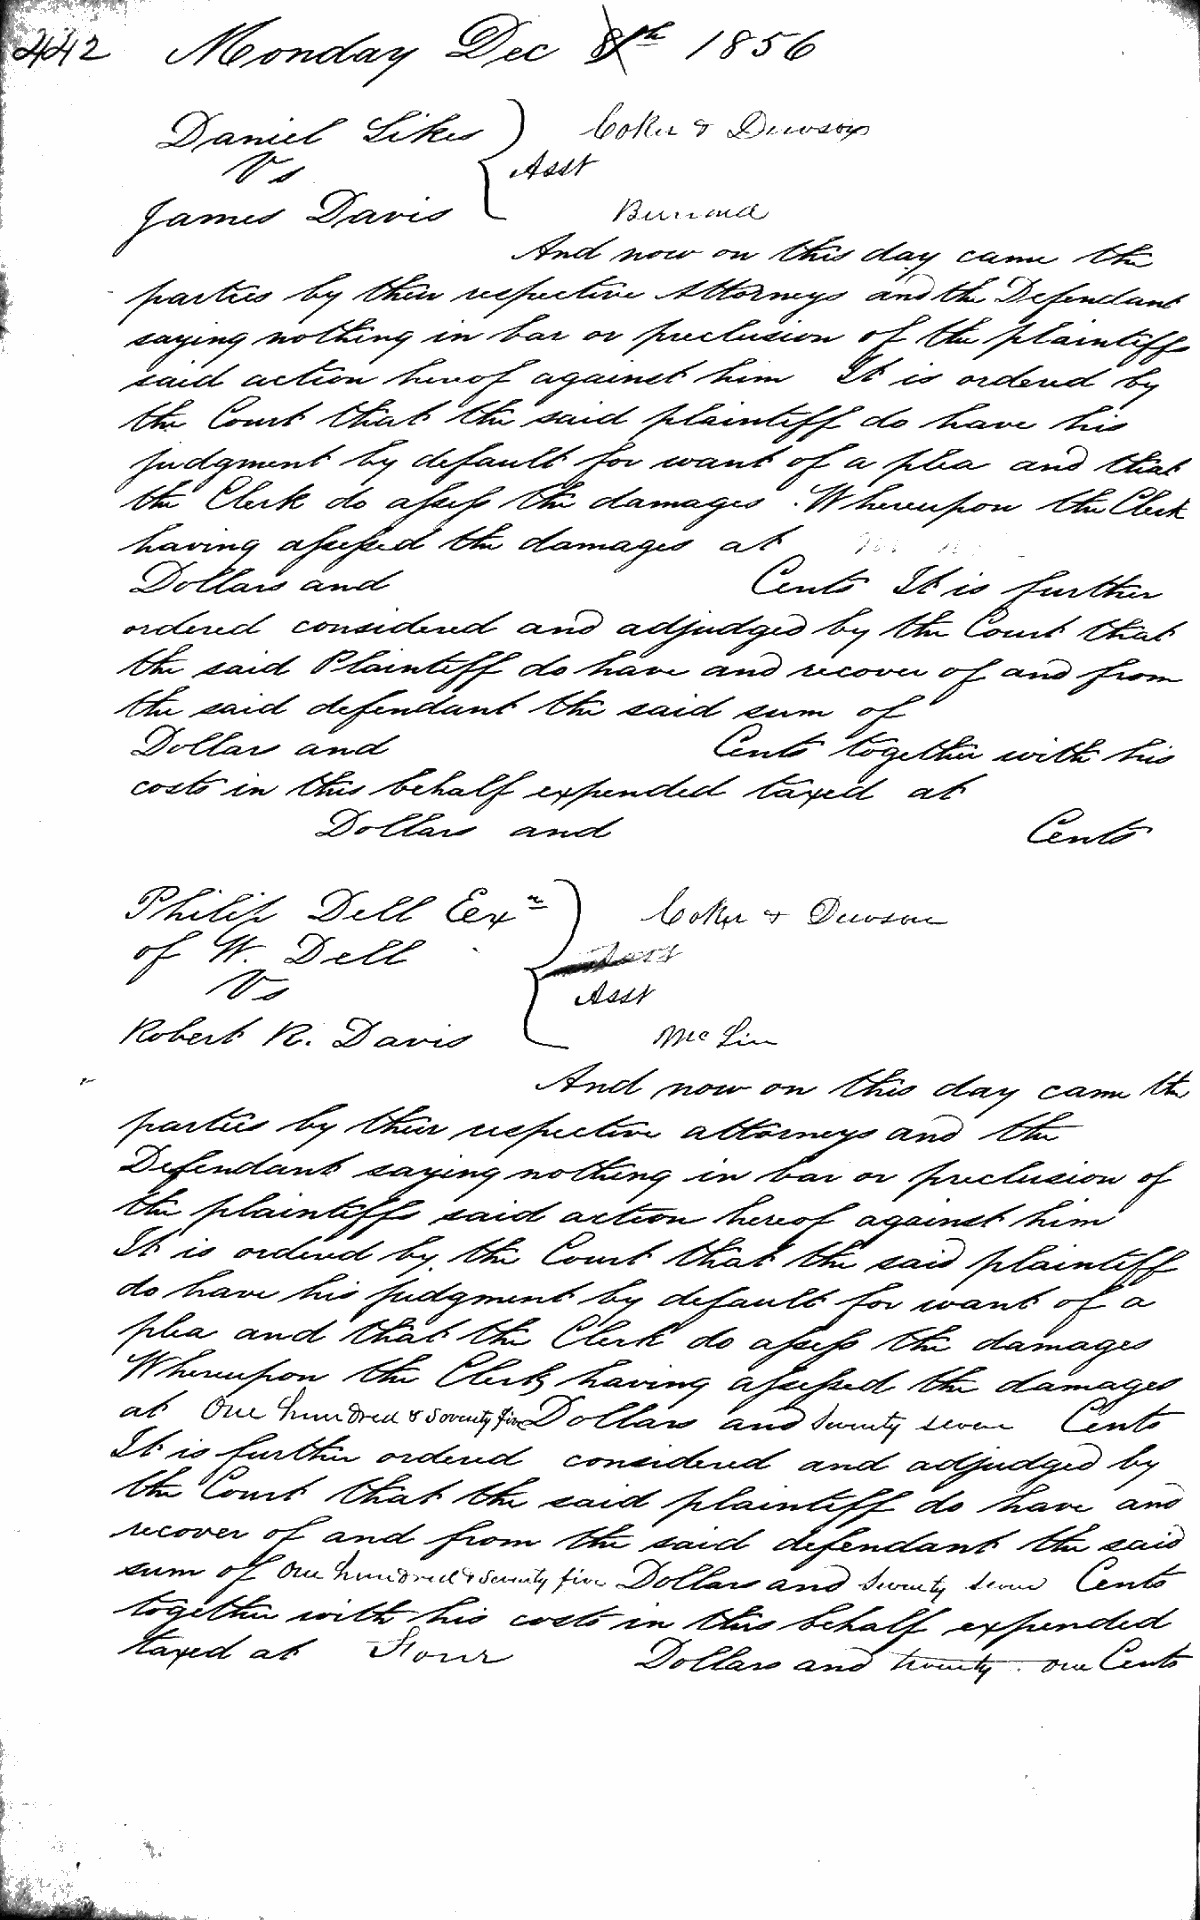 442 Monday Dec 8th 1856
Daniel Sikes Coker & Dawson
Vs Asst
James Davis Bernard
And now on this day came the
parties by their respective Attorneys and the Defendant
saying nothing in bar or preclusion of the plaintiffs
said action hereof against him It is ordered by
the Court that the said plaintiff do have his
judgment by default for want of a plea and that
the Clerk do assess the damages. Whereupon the Clerk
having assessed the damages at
Dollars and Cents It is further
ordered considered and adjudged by the Court that
the said Plaintiff do have and recover of and from
the said defendant the said sum of
Dollars and Cents together with his
costs in this behalf expended taxed at
Dollars and Cents
Philip Dell Exr Coker & Dawson
of W. Dell
Vs Asst
Robert R. Davis McLin
And now on this day came the
parties by their respective attorneys and the
Defendant saying nothing in bar or preclusion of
the plaintiffs said action hereof against him
It is ordered by the Court that the said plaintiff
do have his judgment by default for want of a
plea and that the Clerk do assess the damages
Whereupon the Clerk having assessed the damages
at One hundred & Seventy five Dollars and Seventy seven Cents
It is further ordered considered and adjudged by
the Court that the said plaintiff do have and
recover of and from the said defendant the said
sum of One hundred & Seventy five Dollars and Seventy seven Cents
together with his costs in this behalf expended
taxed at Four Dollars and twenty one Cents